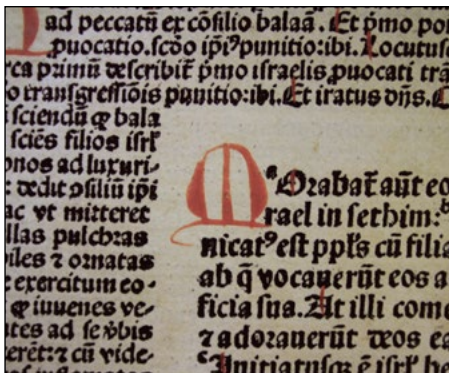 ad peccatū ex cōsilio balaā. Et p̄mo pon
ꝓuocatio. scđo ip̄iꝰ punitio: ibi. Locutusq
rca primū describit̄ p̄mo israelis ꝓuocati trā
o transgressiōis punitio: ibi. Et iratus dn̄s. C
sciendū ꝙ bala
sciēs filios isrl̕
onos ad luxuri-
: dedit ↄsiliū ip̄i
ac vt mitteret
llas pulchras
iles ⁊ ornatas
: exercitum eo-
ꝙ iuuenes ve-
ites ad se v̄bis
erēt: ⁊ cū vide-
MOrabat̄ aūt eo
rael in sethim: b
nicatꝰ est ppl̕s cū filia
ab q̄ vocauerūt eos a
ficia sua. At illi come
⁊ adorauerūt deos ea
Initiatusqꝫ ē isrl̕ be